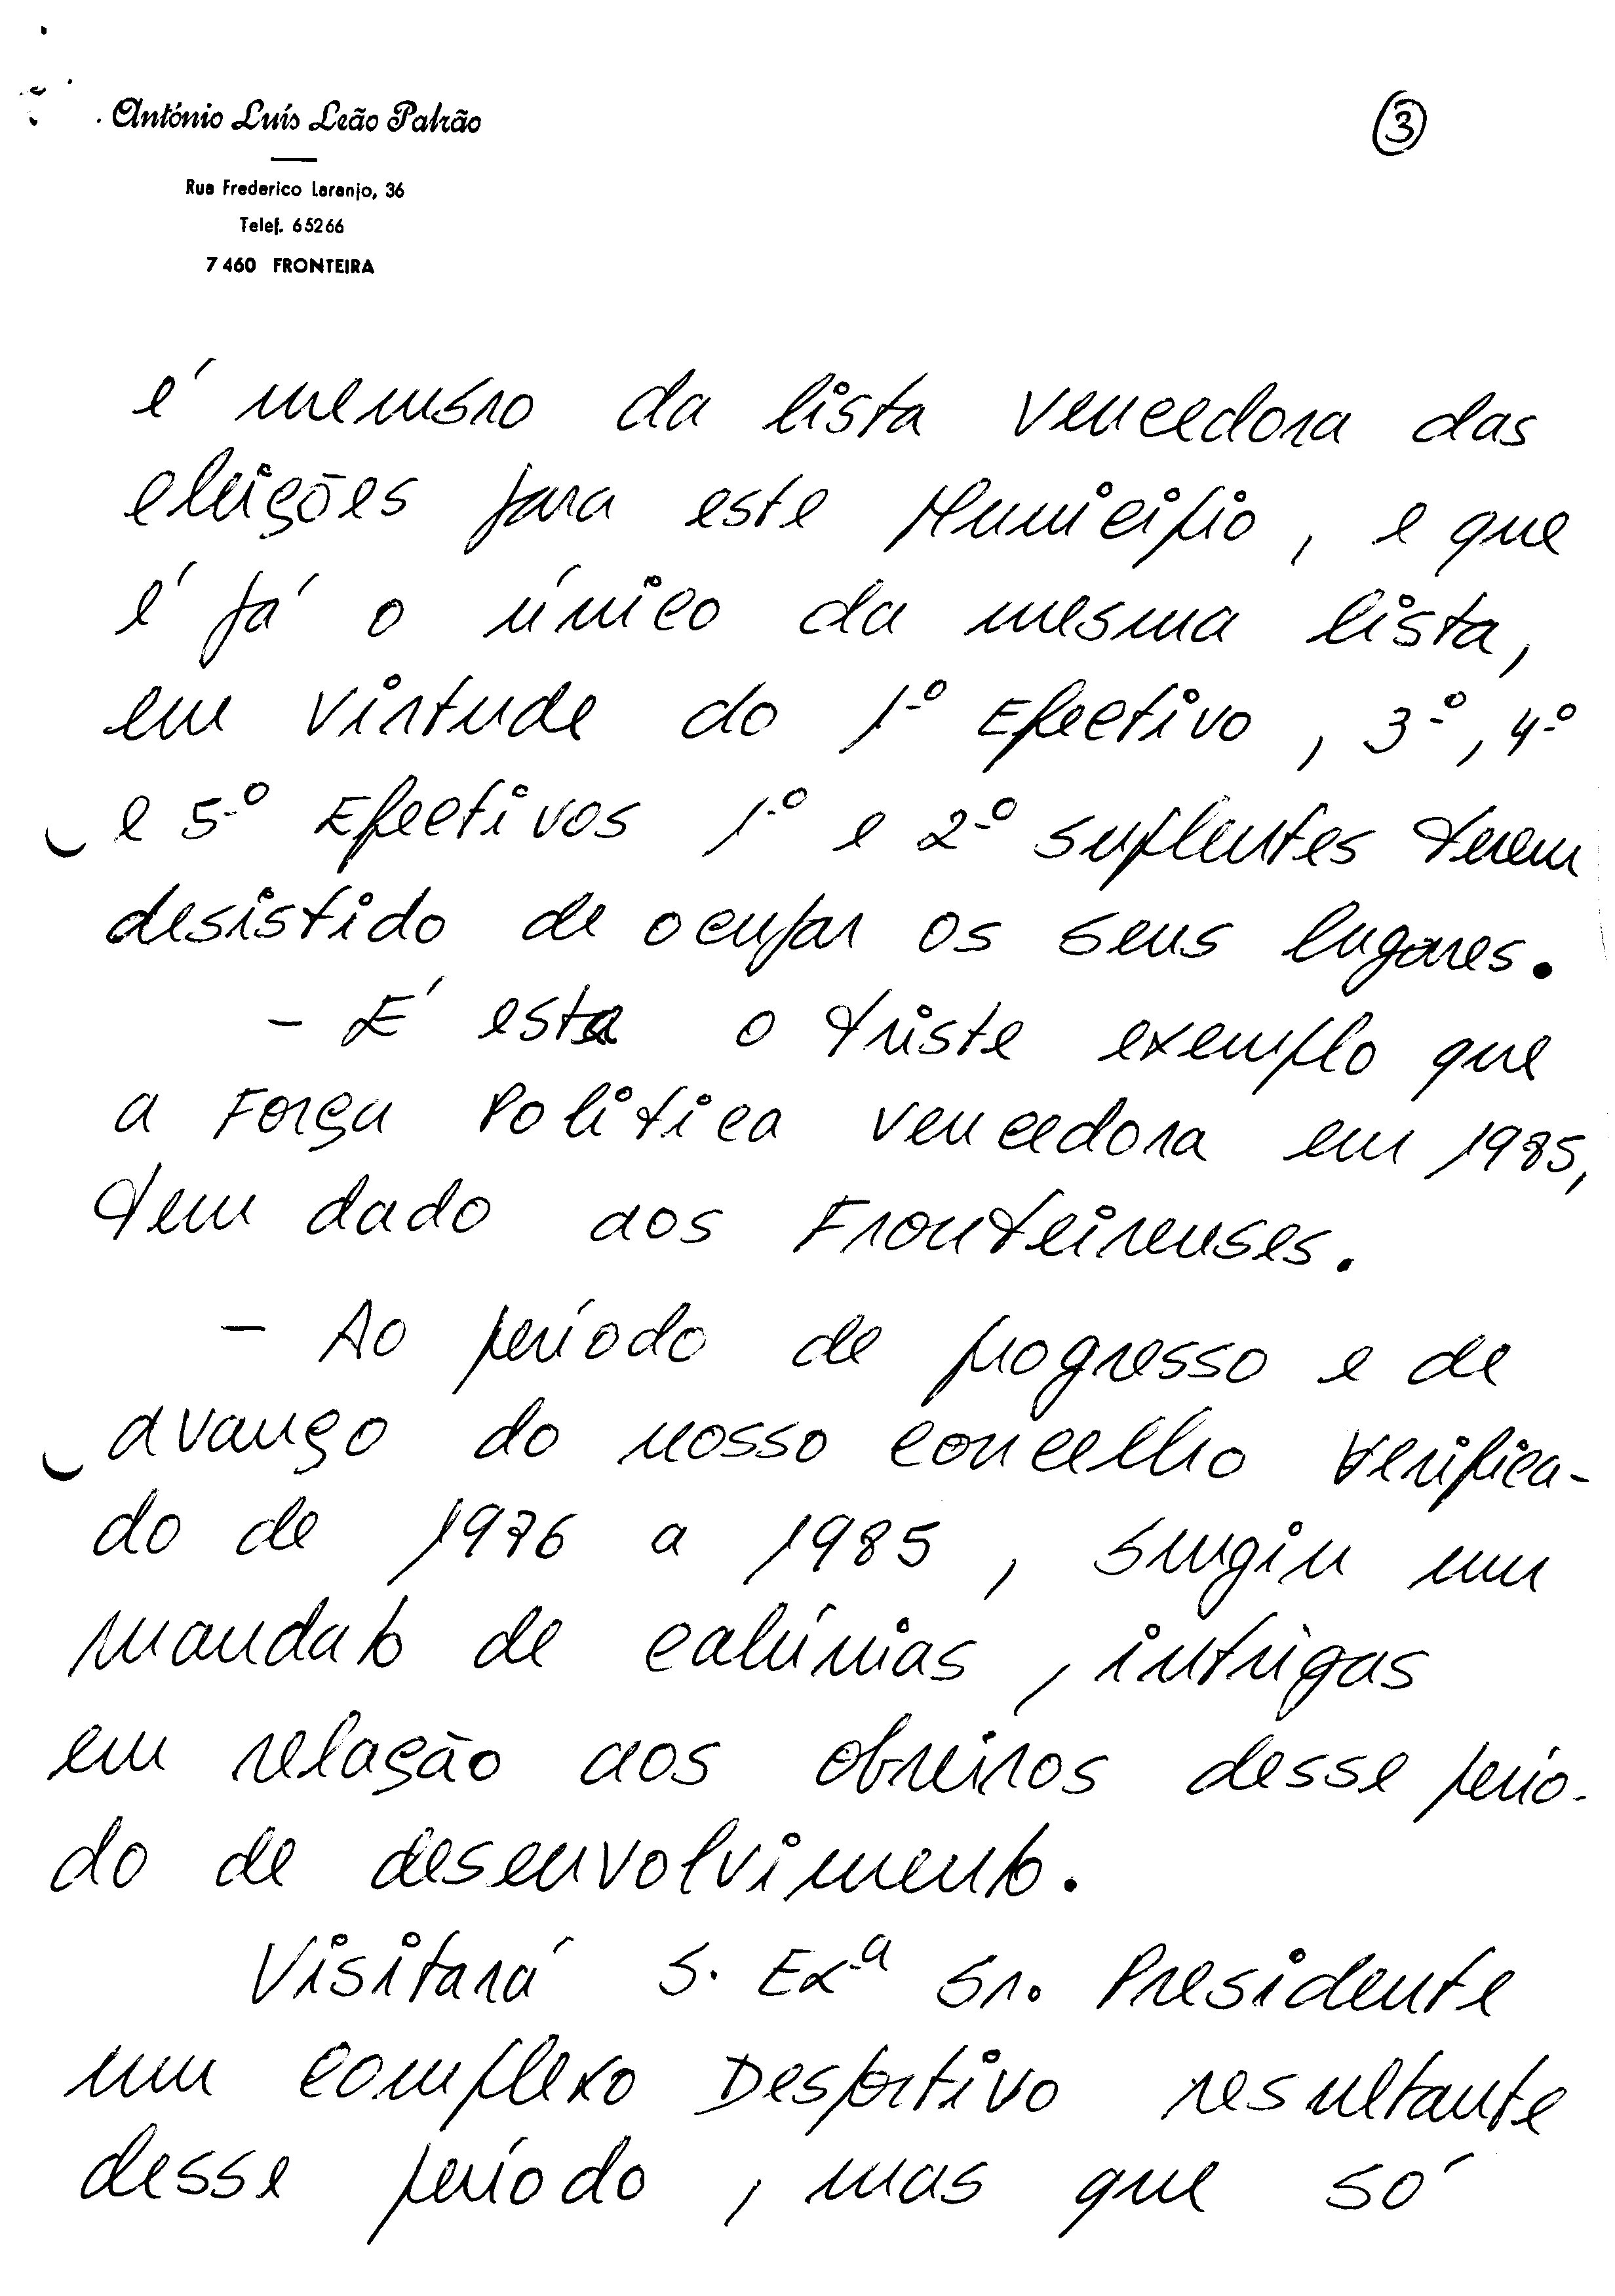 António Luís Leão Patrão
③
Rua Frederico Laranjo, 36
Telef. 65266
7460 FRONTEIRA
é membro da lista vencedora das
eleições para este Municipio, e que
é já o único da mesma lista,
em virtude do 1º Efectivo, 3º, 4º
e 5º Efectivos 1º e 2º suplentes terem
desistido de ocupar os seus lugares.
- É esta o triste exemplo que
a Força Politica vencedora em 1985,
tem dado aos Fronteirenses.
- Ao período de progresso e de
avanço do nosso concelho verifica-
do de 1976 a 1985, surgiu um
mandato de calúnias, intrigas
em relação aos obreiros desse perío-
do de desenvolvimento.
Visitará S. Exª Sr. Presidente
um complexo Desportivo resultante
desse período, mas que só